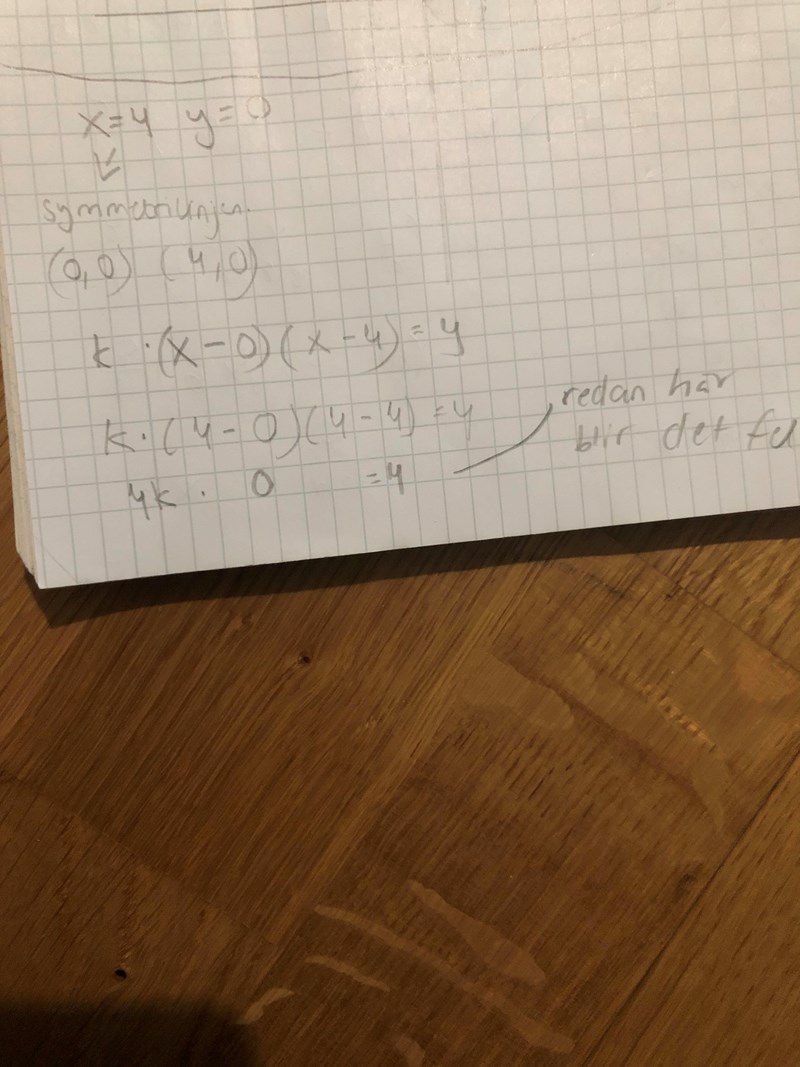 x=4 y=0
symmetrilinjen.
(0,0) (4,0)
k ·(x-0)(x-4)=y
k·(4-0)(4-4)=4
4k · 0 =4
redan här
blir det fel